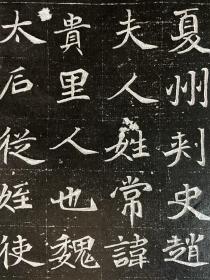 夏州刾史趙
夫人姓常諱
貴里人也魏
太后従姪使